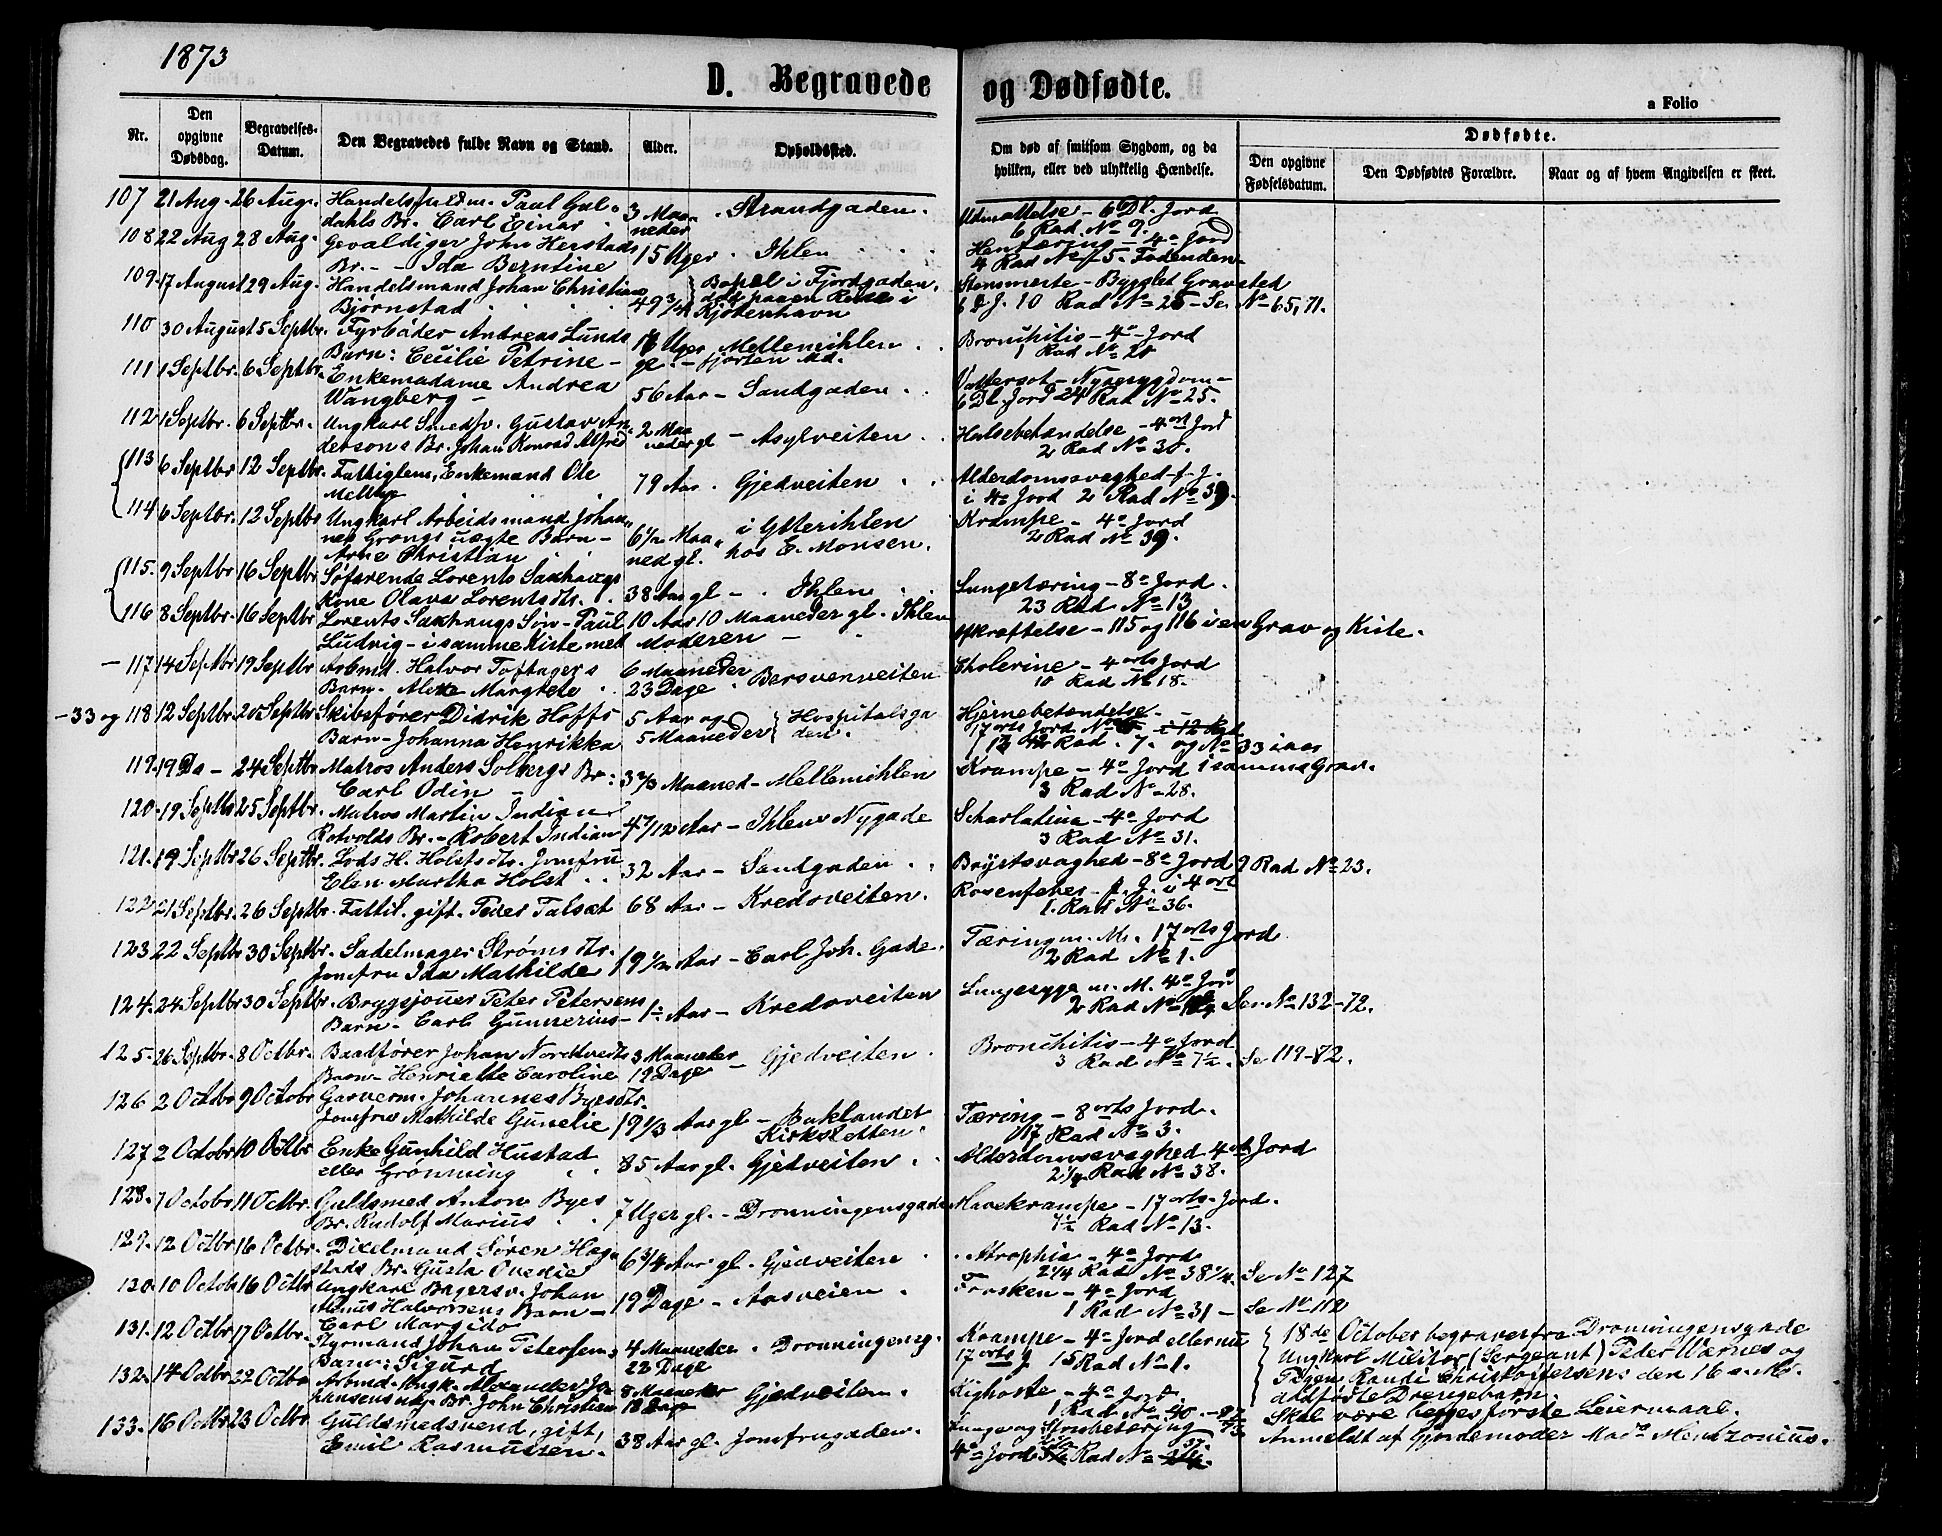 1873
D. Begravede og Dødfødte.
a Folio
Nr.
Den opgivne Dødsdag.
Begravelses-Datum.
Den Begravedes fulde Navn og Stand.
Alder.
Opholdssted.
Om død af smitsom Sygdom, og da hvilken, eller ved ulykkelig Hændelse.
Dødfødte.
Den opgivne Fødselsdatum.
Den Dødfødtes Forældre.
Naar og af hvem Angivelsen er skeet.
107 21 Aug. 26 Aug. Handelsfuldm. Paul Gul- 3 Maa- Strandgaden. Udmattelse - 6 Dl. Jord
dahls Br. Carl Einar neder 6 Rad No 9.
108 22 Aug 28 Aug. Gevaldiger John Herstads 15 Uger. Ihlen Hentæring - 4o Jord
Br. - Ida Berntine 4 Rad No 5. Fodenden
109. 17 August 29 Aug. Handelsmand Johan Christian 49 3/4 Bopæl i Fjordgaden, Bygglet Gravsted
Bjørnstad død paa en Reise i Kjøbenhavn 6 D J. 10 Rad No 25 - Se No 65, 71.
110 30 August 5 Septbr. Fyrbøder Andreas Lunds Uger Mellemihlen Bronchitis - 4o Jord
Barn: Cecilie Petrine - gl. - fjorten Ud. 1 Rad No 20
111 1 Septbr. 6 Septbr. Enkemadame Andrea 56 Aar - Sandgaden. Vattersot - Nyresygdom -
Wangberg - 6 Dl. Jord 24 Rad No 25.
112 1 Septbr. 6 Septbr. Ungkarl Smedsv. Gustav An- 2 Maa Asylveiten Halsebetændelse - 4 ort Jord
dersons Br. Johan Konrad Alfred neder gl 2 Rad No 38.
113 6 Septbr 12 Septbr. Fattiglem, Enkemand Ole 79 Aar. Gjedveiten Alderdomssvaghed f. J.
Melbye i 4o Jord 2 Rad No 39.
114 6 Septbr. 12 Septbr Ungkarl Arbeidsmand Johan- 6 1/2 Maa- i Ytterihlen Krampe - 4o Jord
nes Grongs uægte Barn - ned gl. hos E. Monsen. 2 Rad No 39.
Arne Christian
115. 9 Septbr 16 Septbr Søfarende Lorents Saxhaugs 38 Aar gl - Ihlen Lungetæring - 8o Jord.
Kone Olava Lorentsdtr. 23 Rad No 13
116 8 Septbr. 16 Septbr Lorents Saxhaugs Søn - Paul 10 Aar 10 Maaneder gl. Ihlen Afkræftelse - 115 og 116 i en Grav og Kiste.
Ludvig - i samme Kiste med Moderen -
- 117 14 Septbr 19 Septbr Arbmd. Halvor Toftagers 6 Maaneder Bersvenveiten Cholerine - 4 orts Jord
Barn - Alette Margrete 23 Dage 10 Rad No 18.
- 33 og 118 12 Septbr. 20 Septbr Skibsfører Didrik Hoffs 5 Aar og Hospitalsga Hjernebetændelse -
Barn - Johanna Henrikka 5 Maaneder den. 17 orts Jord Rad. 7. og No 33 iaar
119. 19 Do - 24 Septbr Matros Anders Solbergs Br: 3 2/3 Maaned - Mellemihlen Krampe - 4o Jord i samme Grav.
Carl Odin - 3 Rad No 28.
120. 19 Septbr 25 Septbr. Matros Martin Indian 4 7/12 Aar - Ihlens Nygade Scharlatina - 4o Jord
Rotvolds Br. - Robert Indian 3 Rad No 31.
121. 19 Septbr 26 Septbr. Lods H. Holsts Dtr. Jomfru 32 Aar - Sandgaden Brystsvaghed - 8o Jord 9 Rad No 23.
Elen Martha Holst
122 21 Septbr. 26 Septbr. Fattil. gift. Peder Talsæt 68 Aar - Kredoveiten. Rosenfeber - f. J. i 4 ort
1. Rad No 36.
123 22 Septbr 30 Septbr. Sadelmager Strøms Dtr. 19 1/2 Aar - Carl Joh. Gade. Tæring m. M. 17 orts Jord
Jomfru Ida Mathilde 2 Rad No 1.
124. 24 Septbr 30 Septbr. Brygsjouer Peter Petersens 1 Aar - Kredoveiten Lungesyge m. M. 4o Jord
Barn - Carl Gunnerius - 2 Rad No Se No 132 - 72.
125. 26 Septbr. 8 Octbr. Baadfører Johan Nordtvedts 3 Maaneder Gjedveiten Bronchitis - 4o Jord
Barn - Henriette Caroline 19 Dage - 3 Rad No 7 1/2. Se 119 - 72.
126 2 Octbr 9 Octobr Gasverm. Johannes Byes Dtr. 19 1/3 Aar gl - Baklandet Tæring - 8 orts Jord.
Jomfru Mathilde Gunelie Kirksletten. 17 Rad No 3.
127 2 Octobr 10 Octbr. Enke Gunhild Hustad 85 Aar gl. Gjedveiten Alderdomssvaghed 4 orts Jord
eller Grønning 2 1/4 Rad No 38.
128. 7 Octobr 11 Octbr. Guldsmed Anton Byes 7 Uger gl. - Dronningensgade Mavekrampe - 17 orts Jord.
Br. Rudolf Marius 7 1/2 Rad No 13.
129. 12 Octbr 16 Octbr. Dixelmand Søren Hog- 6 3/4 Aar gl. Gjedveiten Atrophia - 4o Jord
stads Br. Gusta Ovedie 2 1/4 Rad No 38 1/4. Se No 127
130 10 Octobr 16 Octbr Ungkarl Bagersv. Johan 19 Dage - Aasveien Frosken - 4o Jord
Halvorsens Barn - 1 Rad No 31 - Se No 112
Carl Margido
131. 12 Octbr 17 Octbr. Fyrmand Johan Petersens 4 Maaneder Dronningensg. Krampe - 4o Jord eller nu
Barn: Sigurd 22 Dage 17 orts J 15 Rad No 1.
18de October begravet fra Dronningensgade
Ungkarl Militær (Sergeant) Peder Værnes og
Pigen Randi Christoffersens den 16 s. M.
dødfødte Drengebarn.
Skal være begges første Leiermaal.
Anmeldt af Gjordemoder Mad.
132. 14 Octbr. 22 Octbr Arbmd. Ungk. Alexander Jo- 8 Maaneder Gjedveiten Kighoste - 4o Jord
hansens uæg. Br. John Christian 18 Dage 1 Rad No 40.
133. 16 Octbr 23 Octbr. Guldsmedsvend, gift, 38 Aar gl. Jomfrugaden. Lunge og Strubetæring
Emil Rasmussen. 4o Jord Rad No